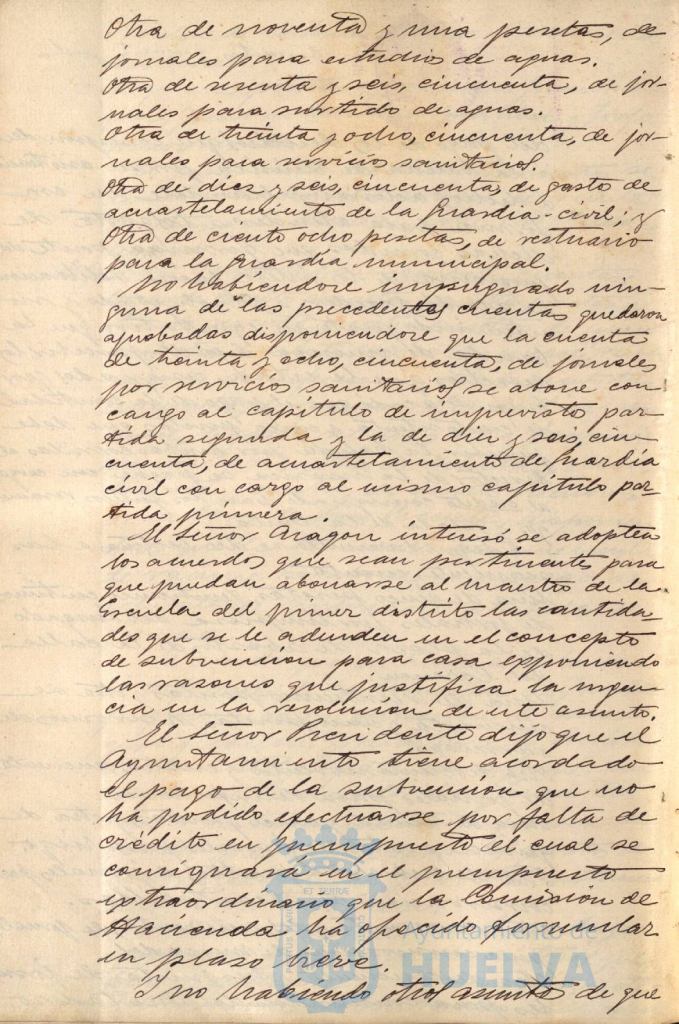 Otra de noventa y una pesetas, de
jornales para estudios de aguas.
Otra de sesenta y seis, cincuenta, de jor-
nales para surtido de aguas.
Otra de treinta y ocho, cincuenta, de jor-
nales para servicios sanitarios.
Otra de diez y seis, cincuenta, de gasto de
acuartelamiento de la Guardia-civil; y
Otra de ciento ocho pesetas, de vestuario
para la guardia municipal.
No habiendose impugnado nin-
guna de las precedentes cuentas quedaron
aprobadas disponiendose que la cuenta
de treinta y ocho, cincuenta, de jornales
por servicios sanitarios se abone con
cargo al capítulo de imprevisto par-
tida segunda y la de diez y seis, cin-
cuenta, de acuartelamiento de Guardia
civil con cargo al mismo capítulo par-
tida primera.
El Señor Aragon interesó se adopten
los acuerdos que sean pertinentes para
que puedan abonarse al maestro de la
Escuela del primer distrito las cantida-
des que se le adeuden en el concepto
de subvencion para casa exponiendo
las razones que justifica la urgen-
cia en la resolucion de este asunto.
El Señor Presidente dijo que el
Ayuntamiento tiene acordado
el pago de la subvencion que no
ha podido efectuarse por falta de
crédito en presupuesto el cual se
consignará en el presupuesto
extraordinario que la Comisión de
Hacienda ha ofrecido formular
en plazo breve.
Y no habiendo otros asuntos de que
Ayuntamiento de
HUELVA